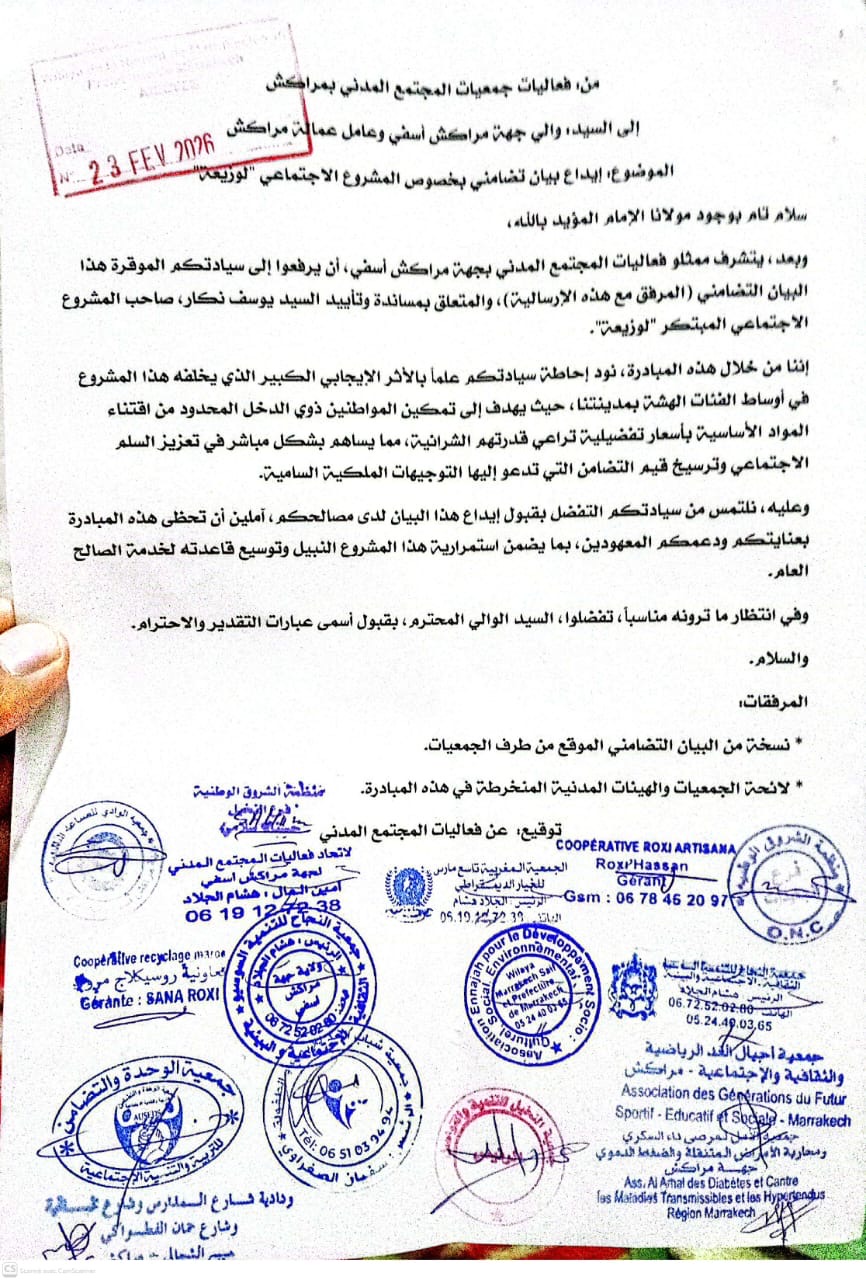 Date
N°... 23 FEV 2026
من: فعاليات جمعيات المجتمع المدني بمراكش
إلى السيد: والي جهة مراكش أسفي وعامل عمالة مراكش
الموضوع: إيداع بيان تضامني بخصوص المشروع الاجتماعي "لوزيعة"
سلام تام بوجود مولانا الإمام المؤيد بالله،
وبعد، يتشرف ممثلو فعاليات المجتمع المدني بجهة مراكش أسفي، أن يرفعوا إلى سيادتكم الموقرة هذا
البيان التضامني (المرفق مع هذه الإرسالية)، والمتعلق بمساندة وتأييد السيد يوسف نكار، صاحب المشروع
الاجتماعي المبتكر "لوزيعة".
إننا من خلال هذه المبادرة، نود إحاطة سيادتكم علماً بالأثر الإيجابي الكبير الذي يخلفه هذا المشروع
في أوساط الفئات الهشة بمدينتنا، حيث يهدف إلى تمكين المواطنين ذوي الدخل المحدود من اقتناء
المواد الأساسية بأسعار تفضيلية تراعي قدرتهم الشرائية، مما يساهم بشكل مباشر في تعزيز السلم
الاجتماعي وترسيخ قيم التضامن التي تدعو إليها التوجيهات الملكية السامية.
وعليه، نلتمس من سيادتكم التفضل بقبول إيداع هذا البيان لدى مصالحكم، آملين أن تحظى هذه المبادرة
بعنايتكم ودعمكم المعهودين، بما يضمن استمرارية هذا المشروع النبيل وتوسيع قاعدته لخدمة الصالح
العام.
وفي انتظار ما ترونه مناسباً، تفضلوا، السيد الوالي المحترم، بقبول أسمى عبارات التقدير والاحترام.
والسلام.
المرفقات:
* نسخة من البيان التضامني الموقع من طرف الجمعيات.
* لائحة الجمعيات والهيئات المدنية المنخرطة في هذه المبادرة.
توقيع: عن فعاليات المجتمع المدني
منظمة الشروق الوطنية
فرع
لاتحاد فعاليات المجتمع المدني
لجهة مراكش أسفي
أمين المال: هشام الجلاد
06 19 12 72 38
الجمعية المغربية تاسع مارس
للخيار الديمقراطي
الرئيس: الجلاد هشام
الهاتف: 06.19.12.72.38
COOPÉRATIVE ROXI ARTISANA
Roxi Hassan
Gérant
Gsm : 06 78 46 20 97
منظمة الشروق الوطنية
فرع
O.N.C
Coopérative recyclage maroc
تعاونية روسيكلاج
Gérante : SANA ROXI
جمعية النجاح للتنمية السوسيو
الثقافية الاجتماعية و البيئية
الرئيس: هشام الجلاد
ولاية جهة
مراكش
أسفي
06 72 52 02 80
Association Ennajah pour le Développement Socio :
Culturel, Social, Environnemental
Wilaya
Marrakech Safi
et Préfecture
de Marrakech
05 24 40 03 65
جمعية النجاح للتنمية
الثقافية، الاجتماعية والبيئية
الرئيس هشام الجلاد
الهاتف 06.72.52.02.80
05.24.40.03.65
جمعية أجيال الغد الرياضية
والثقافية والإجتماعية - مراكش
Association des Générations du Futur
Sportif - Educatif et Sociale - Marrakech
جمعية الأمل لمرضى داء السكري
ومحاربة الأمراض المتنقلة والضغط الدموي
جهة مراكش
Ass. Al Amal des Diabètes et Contre
les Maladies Transmissibles et les Hypertendus
Région Marrakech
جمعية الوحدة والتضامن
للتربية والتنمية الاجتماعية
جمعية شباب
Tél: 06 51 03 94 94
الرئيس
ودادية شارع المدارس وشارع
وشارع حمان الفطواكي
CS Scanné avec CamScanner